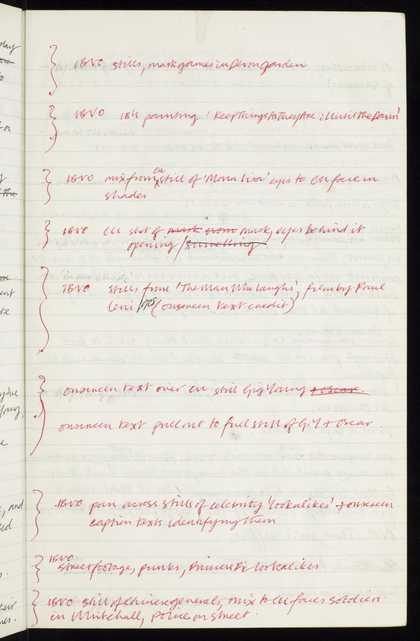 IBVO stills, mask games in Derson garden
IBVO 18c painting 'Keep Things As They Are : Until the Dawn'
cu
IBVO mix from still of 'Mona Lisa' eyes to CU face in
shades
IBVO CU shot of mask from mask, eyes behind it
opening / smelling
IBVO stills from 'The Man Who Laughs', film by Paul
Leni / (onscreen text credit)
onscreen text over cu still Gig Young + oscar.
onscreen text pull out to full still of Gig + Oscar.
IBVO pan across stills of celebrity 'lookalikes' + onscreen
caption texts identifying them
IBVO
street footage, punks, lookalikes
IBVO still of Chinese general, mix to CU faces soldier
in Whitehall, Police on street.